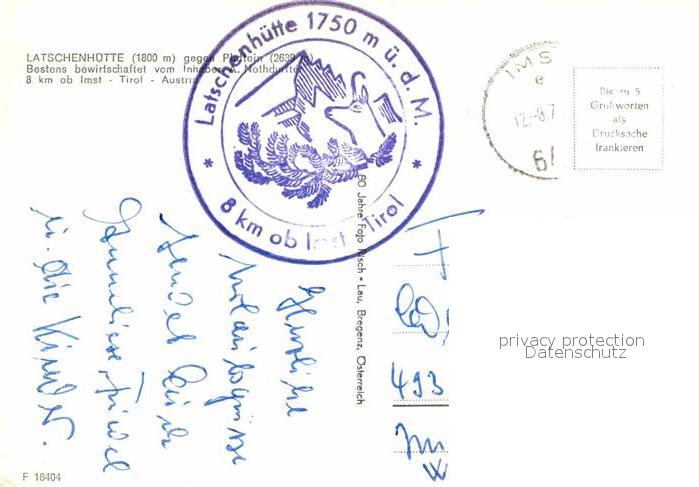 LATSCHENHÜTTE (1800 m) gegen Plattein (2639 m)
Bestens bewirtschaftet vom Inhaber A. Nothdurfter
8 km ob Imst - Tirol - Austria
* Latschenhütte 1750 m ü. d. M. *
8 km ob Imst - Tirol
IMS
e
12.-8.7
6
Bis zu 5
Grußworten
als
Drucksache
frankieren
80 Jahre Foto Risch - Lau, Bregenz, Österreich
Herzliche
Urlaubsgrüsse
sendet Euch
Familie
u. die Kinder.
493
privacy protection
Datenschutz
F 16404